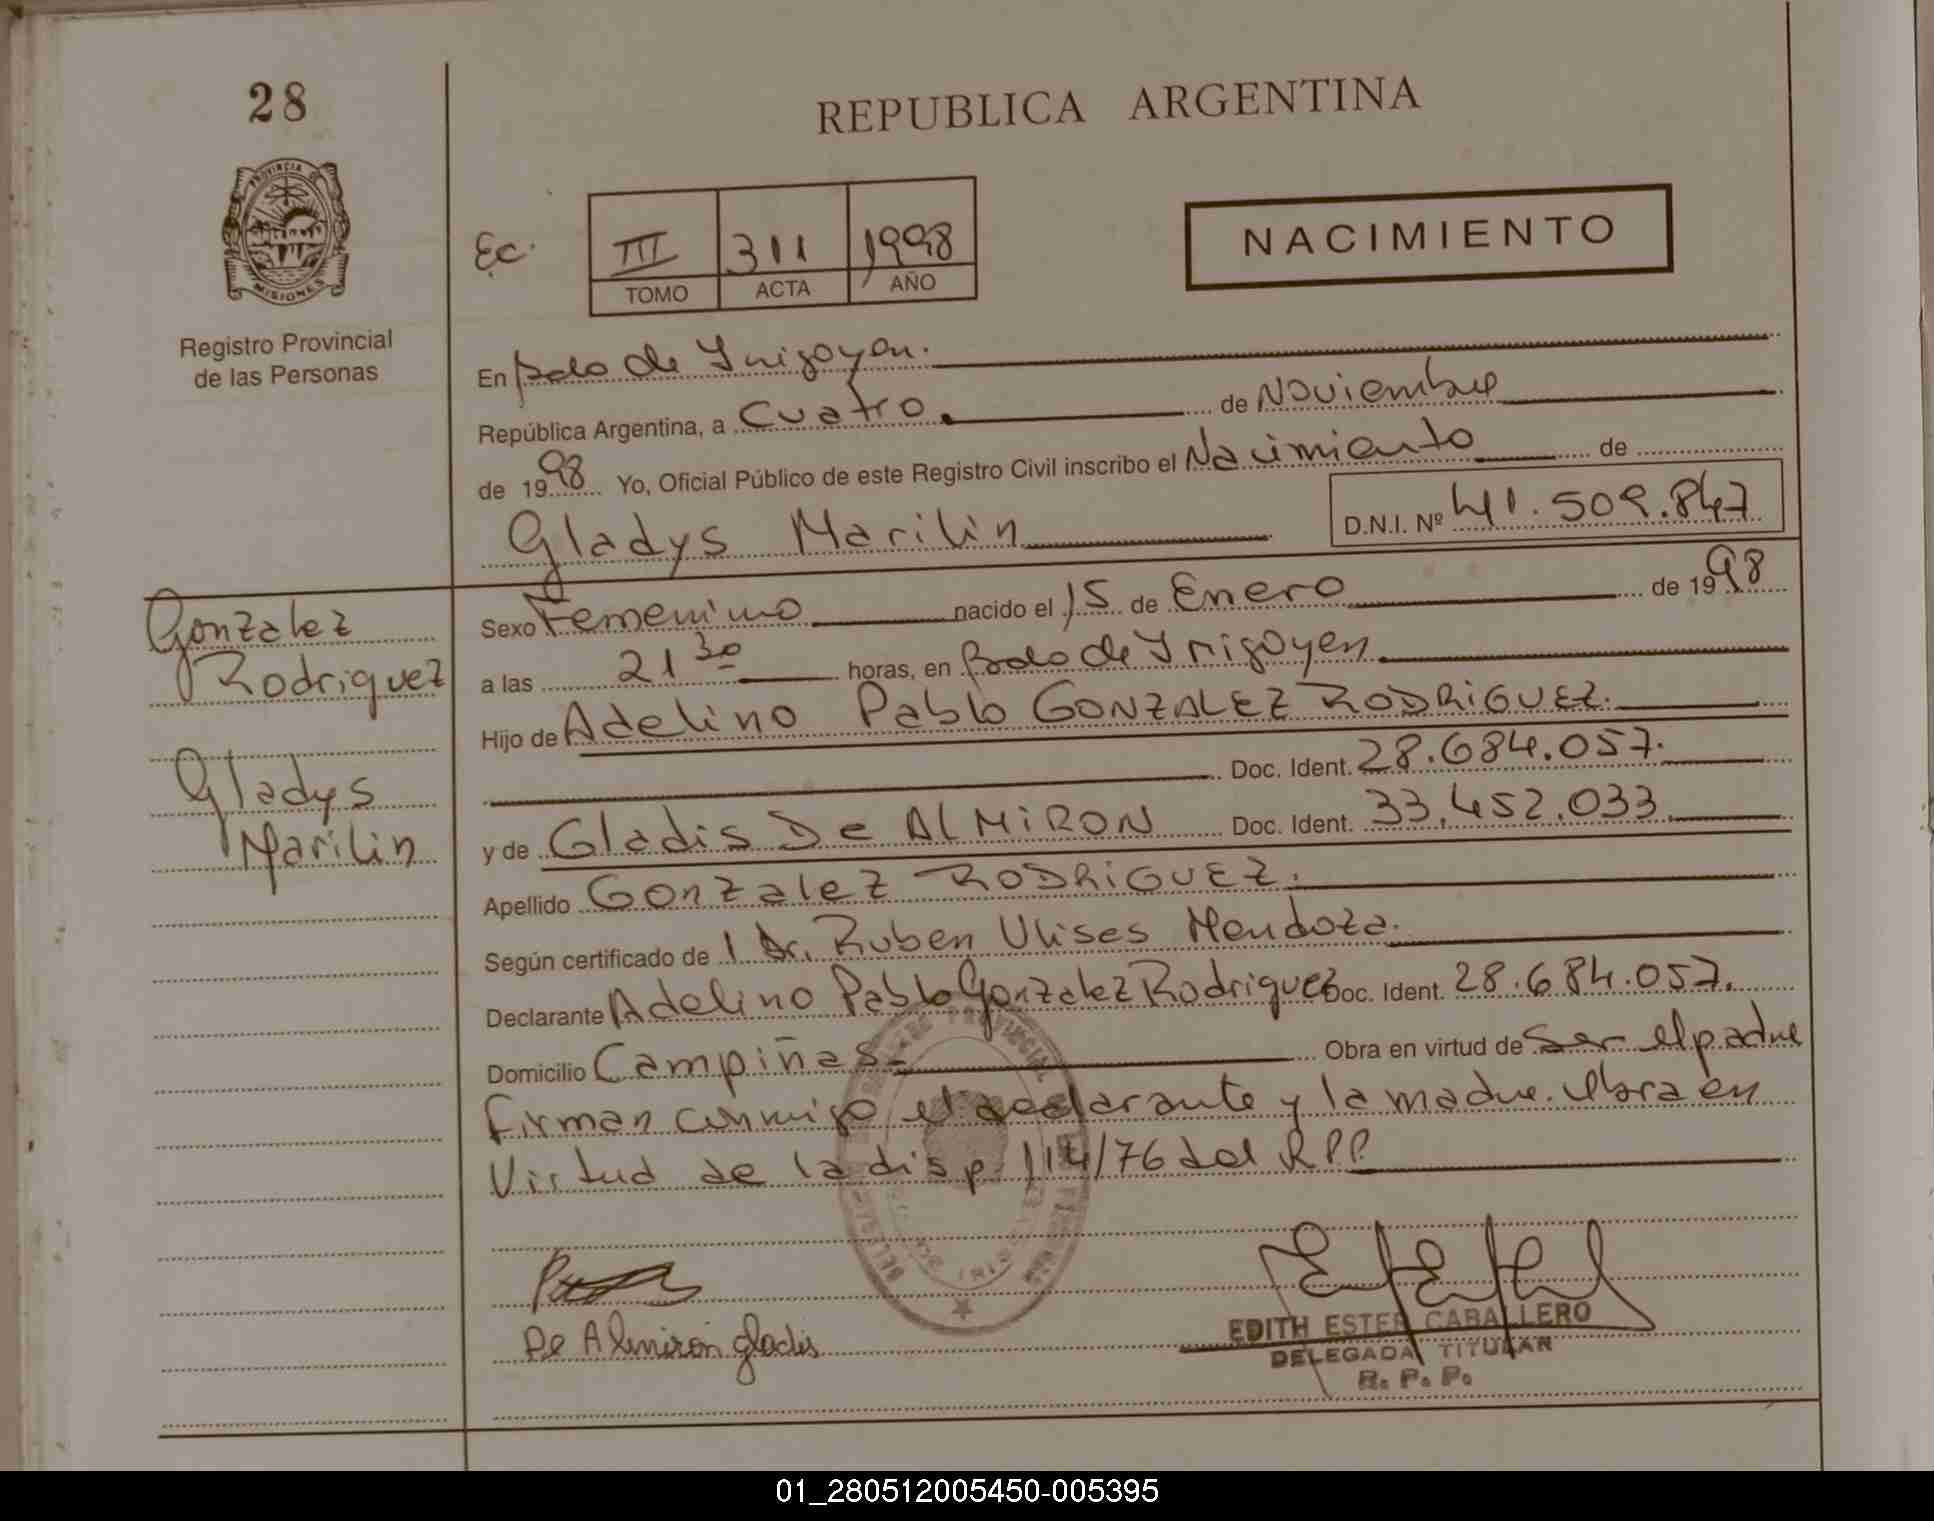 28
REPUBLICA ARGENTINA
PROVINCIA DE
MISIONES
Registro Provincial
de las Personas
Ec.
III 311 1998
TOMO ACTA AÑO
NACIMIENTO
En Bdo de Yrigoyen.
República Argentina, a Cuatro. de Noviembre
de 1998 Yo, Oficial Público de este Registro Civil inscribo el Nacimiento de
Gladys Marilin D.N.I. Nº 41.509.847
Gonzalez
Rodriguez
Gladys
Marilin
Sexo Femenino nacido el 15 de Enero de 1998
a las 21 30 horas, en Bdo de Yrigoyen
Hijo de Adelino Pablo GONZALEZ RODRIGUEZ.
Doc. Ident. 28.684.057.
y de Gladis De ALMIRON Doc. Ident. 33.452.033
Apellido Gonzalez RODRIGUEZ.
Según certificado de 1 Dr. Ruben Ulises Mendoza.
Declarante Adelino Pablo Gonzalez Rodriguez Doc. Ident. 28.684.057.
Domicilio Campiñas Obra en virtud de Ser el padre
firman conmigo el declarante y la madre. Obra en
Virtud de la disp 114/76 del RPP
De Almiron gladis
EDITH ESTER CABALLERO
DELEGADA TITULAR
R. P. P.
01_280512005450-005395